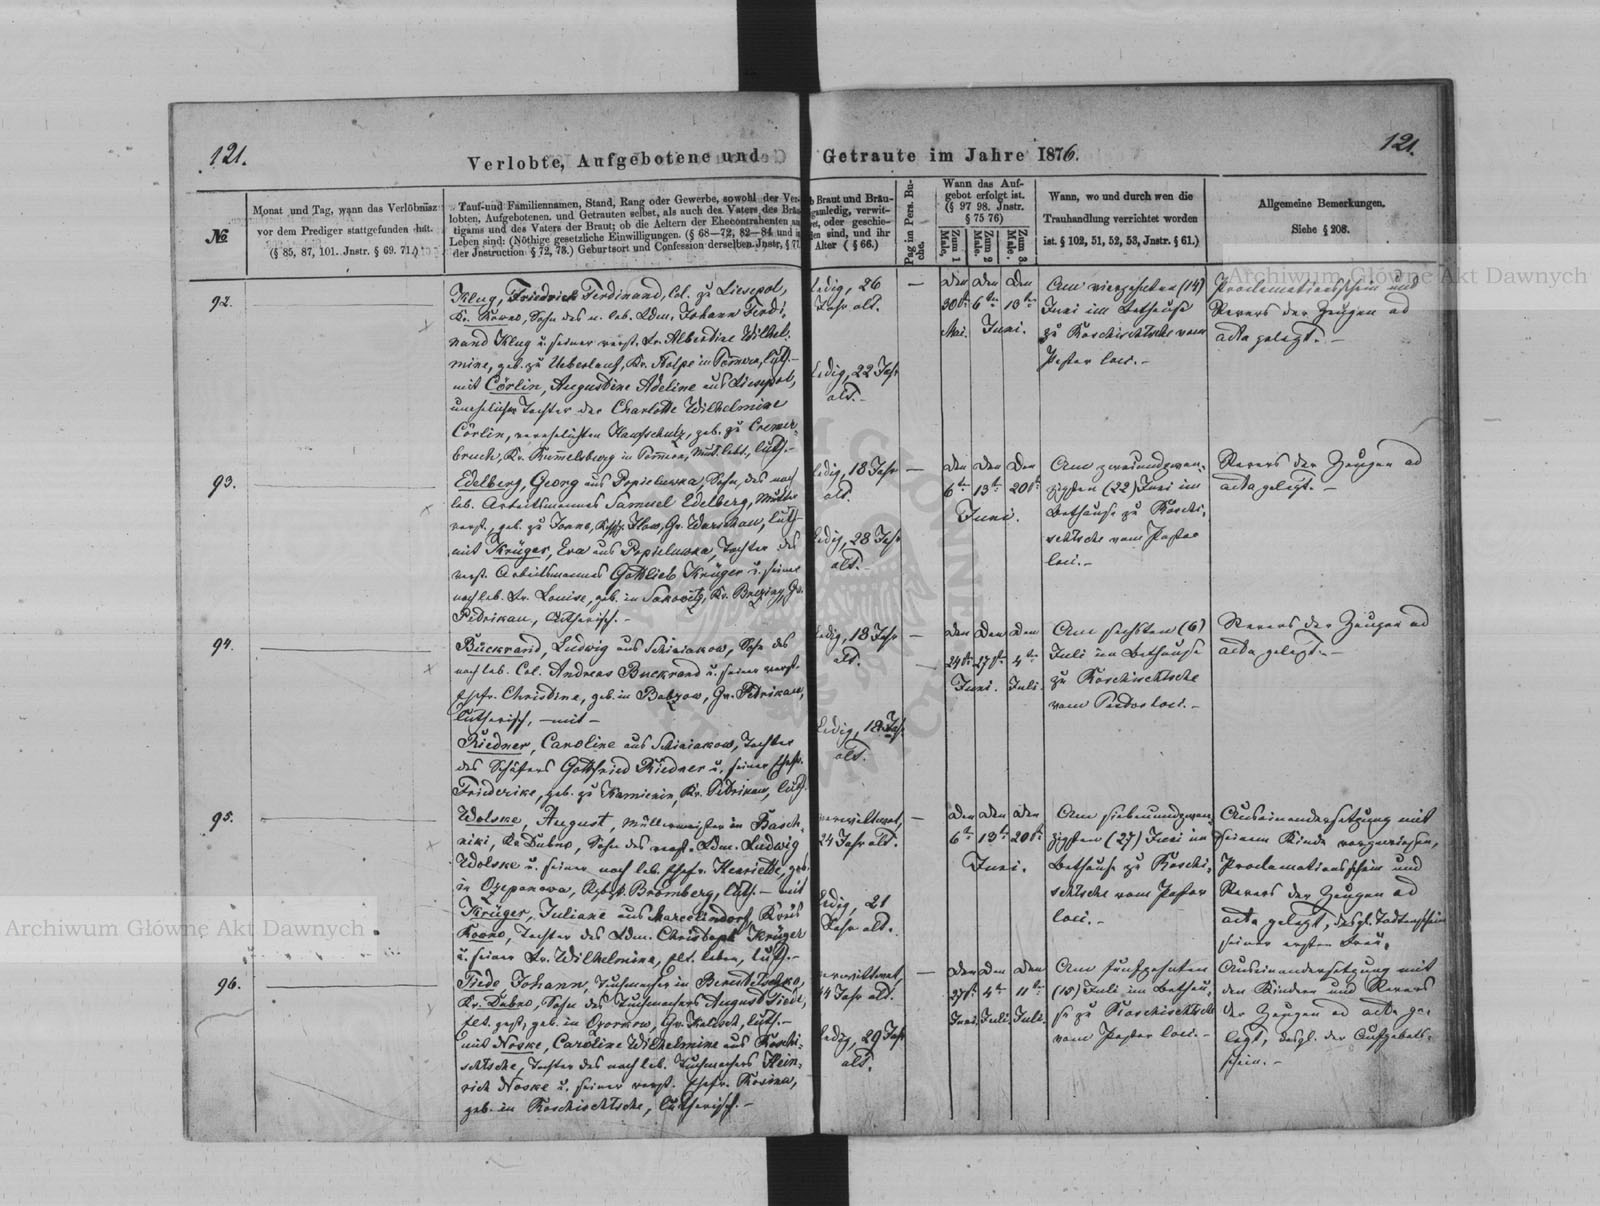 121.
121.
Verlobte, Aufgebotene und Getraute im Jahre 1876.
№
Monat und Tag, wann das Verlöbniss
vor dem Prediger stattgefunden hat.
(§ 85, 87, 101. Jnstr. § 69. 71.)
Tauf-und Familiennamen, Stand, Rang oder Gewerbe, sowohl der Ver-
lobten, Aufgebotenen und Getrauten selbst, als auch des Vaters des Bräu-
tigams und des Vaters der Braut; ob die Aeltern der Ehecontrahenten am
Leben sind: (Nöthige gesetzliche Einwilligungen. (§ 68—72, 82—84 und in
der Jnstruction § 72, 73.) Geburtsort und Confession derselben. Jnstr. § 71
Braut und Bräu-
ledig, verwit-
oder geschie-
sind, und ihr
Alter ( § 66.)
Pag im Pers. Bu-
che.
Wann das Auf-
gebot erfolgt ist.
(§ 97 98. Jnstr.
§ 75 76)
Zum 1 Male.
Zum 2 Male.
Zum 3. Male.
Wann, wo und durch wen die
Trauhandlung verrichtet worden
ist. § 102, 51, 52, 53, Jnstr. § 61.)
Allgemeine Bemerkungen.
Siehe § 208.
92.
Klug, Friedrich Ferdinand, Col. zu Liesepol,
Kr. Kowno, Sohn des n. leb. Ldm. Johann Ferdi-
nand Klug u. seiner verst. Fr. Albertine Wilhel-
mine, geb. zu Ueberlauf, Kr. Stolpe in Pommern, luth.—
mit Cörlin, Augustine Adeline aus Liesepol,
uneheliche Tochter der Charlotte Wilhelmine
Cörlin, verehelichten geb. zu Cremer-
bruch, Kr. Rummelsburg in Pommern, Mutt. lebt, luth.—
ledig, 26
Jahr alt.
ledig, 22 Jahr
alt.—
—
den 30ten Mai.
den 6ten
den 13ten
Juni.
Am vierzehnten (14)
Juni im Bethause
zu Roschischtsche vom
Pastor loci.—
Proclamationsschein und
Revers der Zeugen ad
acta gelegt.—
93.
Edelberg, Georg aus Popieluwka, Sohn des noch
leb. Arbeitsmannes Samuel Edelberg, Mutter
verst., geb. zu Gv. Warschau, luth.—
mit Krüger, Eva aus Popieluwka, Tochter des
verst. Arbeitsmannes Gottlieb Krüger u. seiner
noch leb. Fr. Louise, geb. in Kr. Gv.
Petrikau, lutherisch.—
ledig, 18 Jahr
alt.
ledig, 28 Jahr
alt.—
—
den 6ten
den 13ten
den 20ten
Juni.
Am zweiundzwan-
zigsten (22) Juni im
Bethause zu Roschi-
schtsche vom Pastor
loci.—
Revers der Zeugen ad
acta gelegt.—
94.
Buckrand, Ludwig aus Schiniakow, Sohn des
noch leb. Col. Andreas Buckrand u. seiner verst.
Ehefr. Christine, geb. in Gv. Petrikau,
lutherisch, —mit—
Riedner, Caroline aus Schiniakow, Tochter
des Schäfers Gottfried Riedner u. seiner Ehefr.
Friederike, geb. zu Kamienin, Kr. Petrikau, luth.
ledig, 18 Jahr
alt.
ledig, 18 Jahr
alt.
—
den 24ten
den 27ten
Juni.
den 4ten
Juli.
Am sechsten (6)
Juli im Bethause
zu Roschischtsche
vom Pastor loci.—
Revers der Zeugen ad
acta gelegt.—
95.
Wolske, August, Müllermeister in Basch-
niki, Kr. Dubno, Sohn des verst. Ldm. Ludwig
Wolske u. seiner noch leb. Ehefr. Henriette, geb.
in Rgbzk. Bromberg, luth.— mit
Krüger, Juliane aus Marcelindorf, Kreis
Kowno, Tochter des Ldm. Christoph Krüger
u. seiner Fr. Wilhelmine, Elt. leben, luth.—
verwittwet,
24 Jahr alt.
ledig, 21
Jahr alt.
—
den 6ten
den 13ten
den 20ten
Juni.
Am siebenundzwan-
zigsten (27) Juni im
Bethause zu Roschi-
schtsche vom Pastor
loci.—
Auseinandersetzung mit
seinem Kinde vorgewiesen,
Proclamationsschein und
Revers der Zeugen ad
acta gelegt, desgl. Todtenschein
seiner ersten Frau.
96.
Tiede, Johann, Tuchmacher in
Kr. Dubno, Sohn des Tuchmachers August Tiede,
Elt. gest., geb. in Ozorkow, Gv. Kalisch, luth.—
mit Noske, Caroline Wilhelmine aus Roschi-
schtsche, Tochter des noch leb. Tuchmachers Hein-
rich Noske u. seiner verst. Ehefr. Rosina,
geb. in Roschischtsche, lutherisch.—
verwittwet,
44 Jahr alt.
ledig, 29 Jahr
alt.
—
den 27ten Juni.
den 4ten Juli.
den 11ten Juli.
Am fünfzehnten
(15) Juli im Bethau-
se zu Roschischtsche
vom Pastor loci.—
Auseinandersetzung mit
den Kindern und Revers
der Zeugen ad acta ge-
legt, desgl. der Aufgebots-
schein.—
Archiwum Główne Akt Dawnych
Archiwum Główne Akt Dawnych